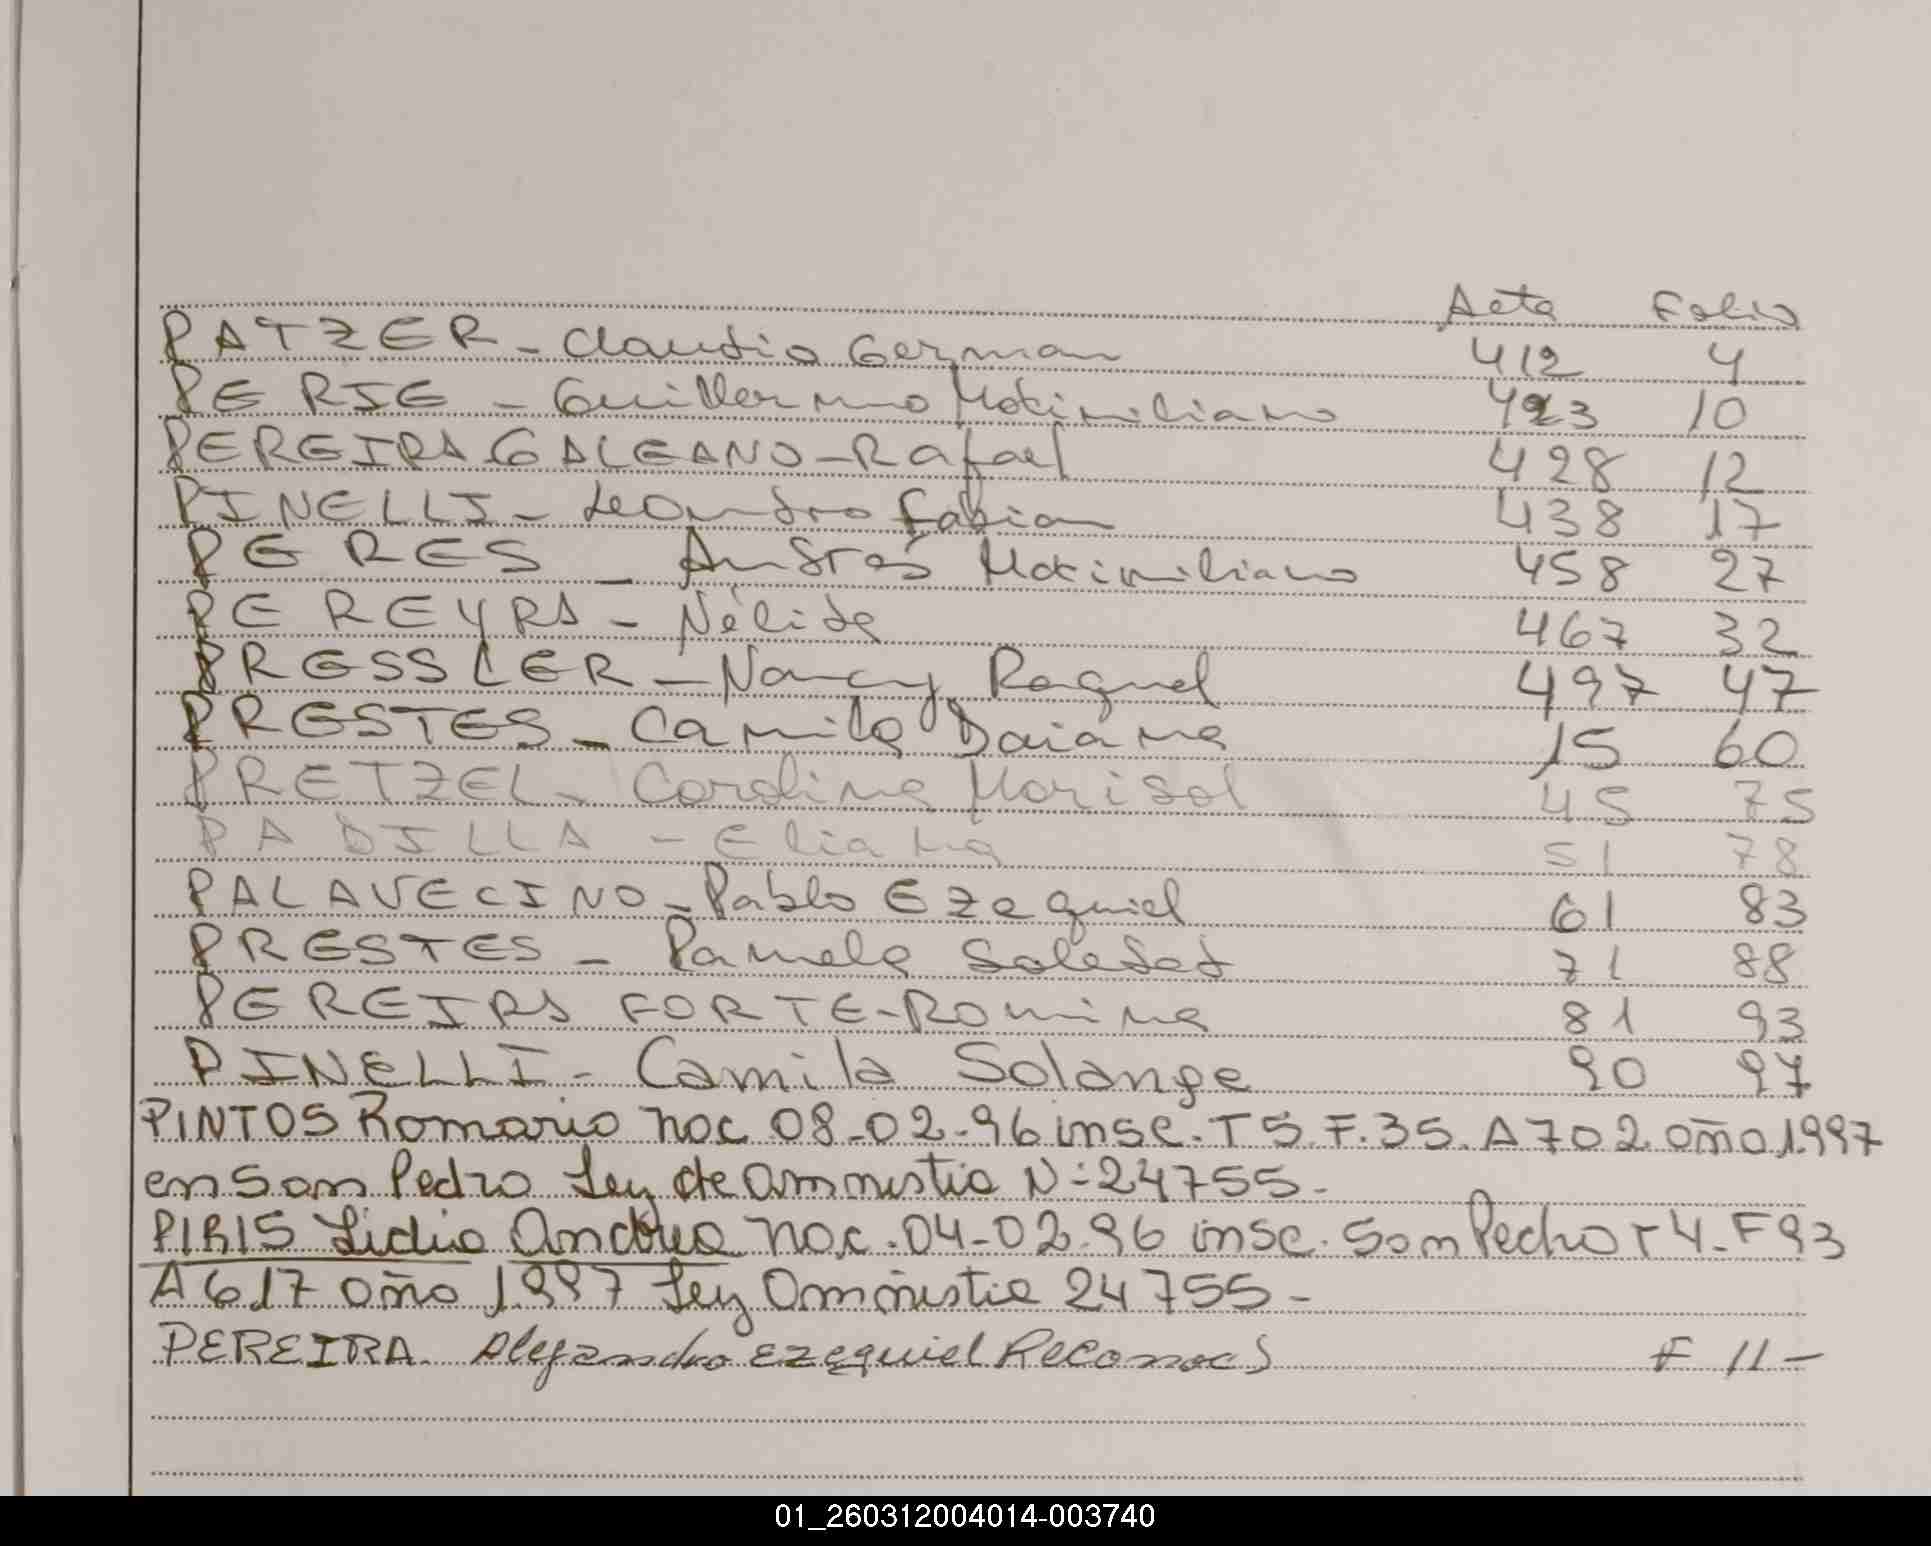 Acta Folio
PATZER - Claudio German 412 4
PERIE - Guillermo Maximiliano 423 10
PEREIRA GALEANO - Rafael 428 12
PINELLI - Leandro Fabian 438 17
PERES - Andrés Maximiliano 458 27
PEREYRA - Nélida 467 32
PRESSLER - Nancy Raquel 497 47
PRESTES - Camila Daiana 15 60
PRETZEL - Carolina Marisol 45 75
PADILLA - Eliana 51 78
PALAVECINO - Pablo Ezequiel 61 83
PRESTES - Pamela Soledad 71 88
PEREIRA FORTE - Romina 81 93
PINELLI - Camila Solange 90 97
PINTOS Romario nac 08-02-96 insc. T5.F.35. A702 año 1997
en San Pedro Ley de amnistia N: 24755 -
PIRIS Lidia Andrea nac. 04-02-96 insc. San Pedro T4-F93
A617 año 1997 Ley Amnistia 24755 -
PEREIRA Alejandro Ezequiel F 11 -
01_260312004014-003740